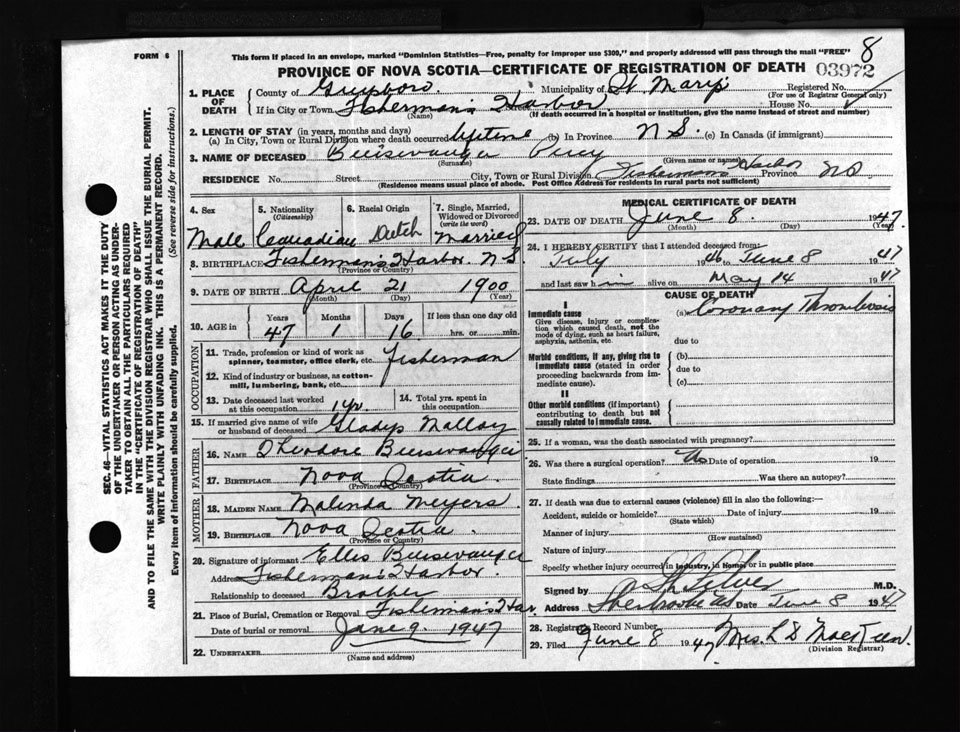 FORM 6
This form if placed in an envelope, marked "Dominion Statistics—Free, penalty for improper use $300," and properly addressed will pass through the mail "FREE"
8
PROVINCE OF NOVA SCOTIA—CERTIFICATE OF REGISTRATION OF DEATH
03972
SEC. 46—VITAL STATISTICS ACT MAKES IT THE DUTY
OF THE UNDERTAKER OR PERSON ACTING AS UNDER-
TAKER TO OBTAIN ALL THE PARTICULARS REQUIRED
IN THE "CERTIFICATE OF REGISTRATION OF DEATH"
AND TO FILE THE SAME WITH THE DIVISION REGISTRAR WHO SHALL ISSUE THE BURIAL PERMIT.
WRITE PLAINLY WITH UNFADING INK. THIS IS A PERMANENT RECORD.
Every item of information should be carefully supplied. (See reverse side for instructions.)
1. PLACE OF DEATH
County of Guysboro. Municipality of St. Mary's Registered No.
(For use of Registrar General only)
If in City or Town Fisherman's Harbor Street House No.
(Name) (If death occurred in a hospital or institution, give the name instead of street and number)
2. LENGTH OF STAY (in years, months and days)
(a) In City, Town or Rural Division where death occurred lifetime (b) In Province N S. (c) In Canada (if immigrant)
3. NAME OF DECEASED Percy
(Surname) (Given name or names)
RESIDENCE No. Street City, Town or Rural Division Fisherman's Harbor Province NS
(Residence means usual place of abode. Post Office Address for residents in rural parts not sufficient)
4. Sex Male
5. Nationality (Citizenship) Canadian
6. Racial Origin Dutch
7. Single, Married, Widowed or Divorced (write the word) Married
8. BIRTHPLACE Fisherman's Harbor. N S.
(Province or Country)
9. DATE OF BIRTH April 21 1900
(Month) (Day) (Year)
10. AGE in Years 47 Months 1 Days 16 If less than one day old hrs. or min.
OCCUPATION
11. Trade, profession or kind of work as spinner, teamster, office clerk, etc. Fisherman
12. Kind of industry or business, as cotton-mill, lumbering, bank, etc.
13. Date deceased last worked at this occupation 1 yr.
14. Total yrs. spent in this occupation
15. If married give name of wife or husband of deceased Gladys Malloy
FATHER
16. NAME Theodore
17. BIRTHPLACE Nova Scotia
(Province or Country)
MOTHER
18. MAIDEN NAME Malinda Meyers
19. BIRTHPLACE Nova Scotia
(Province or Country)
20. Signature of informant Ellis
Address Fisherman's Harbor.
Relationship to deceased Brother
21. Place of Burial, Cremation or Removal Fisherman's Har.
Date of burial or removal June 9. 1947
22. UNDERTAKER
(Name and address)
MEDICAL CERTIFICATE OF DEATH
23. DATE OF DEATH June 8. 1947.
(Month) (Day) (Year)
24. I HEREBY CERTIFY that I attended deceased from
July 1946 to June 8 1947
and last saw him alive on May 14 1947
CAUSE OF DEATH
I
Immediate cause
Give disease, injury or complication which caused death, not the mode of dying, such as heart failure, asphyxia, asthenia, etc.
(a) Coronary Thrombosis
due to
Morbid conditions, if any, giving rise to immediate cause (stated in order proceeding backwards from immediate cause).
(b)
due to
(c)
II
Other morbid conditions (if important) contributing to death but not causally related to immediate cause.
25. If a woman, was the death associated with pregnancy?
26. Was there a surgical operation? No Date of operation 19
State findings Was there an autopsy?
27. If death was due to external causes (violence) fill in also the following:—
Accident, suicide or homicide? Date of injury 19
(State which)
Manner of injury
(How sustained)
Nature of injury
Specify whether injury occurred in Industry, in Home, or in public place
Signed by M.D.
Address Sherbrooke NS Date June 8 1947
28. Registrar's Record Number
29. Filed June 8 1947 Mrs. L D MacKeen.
(Division Registrar)